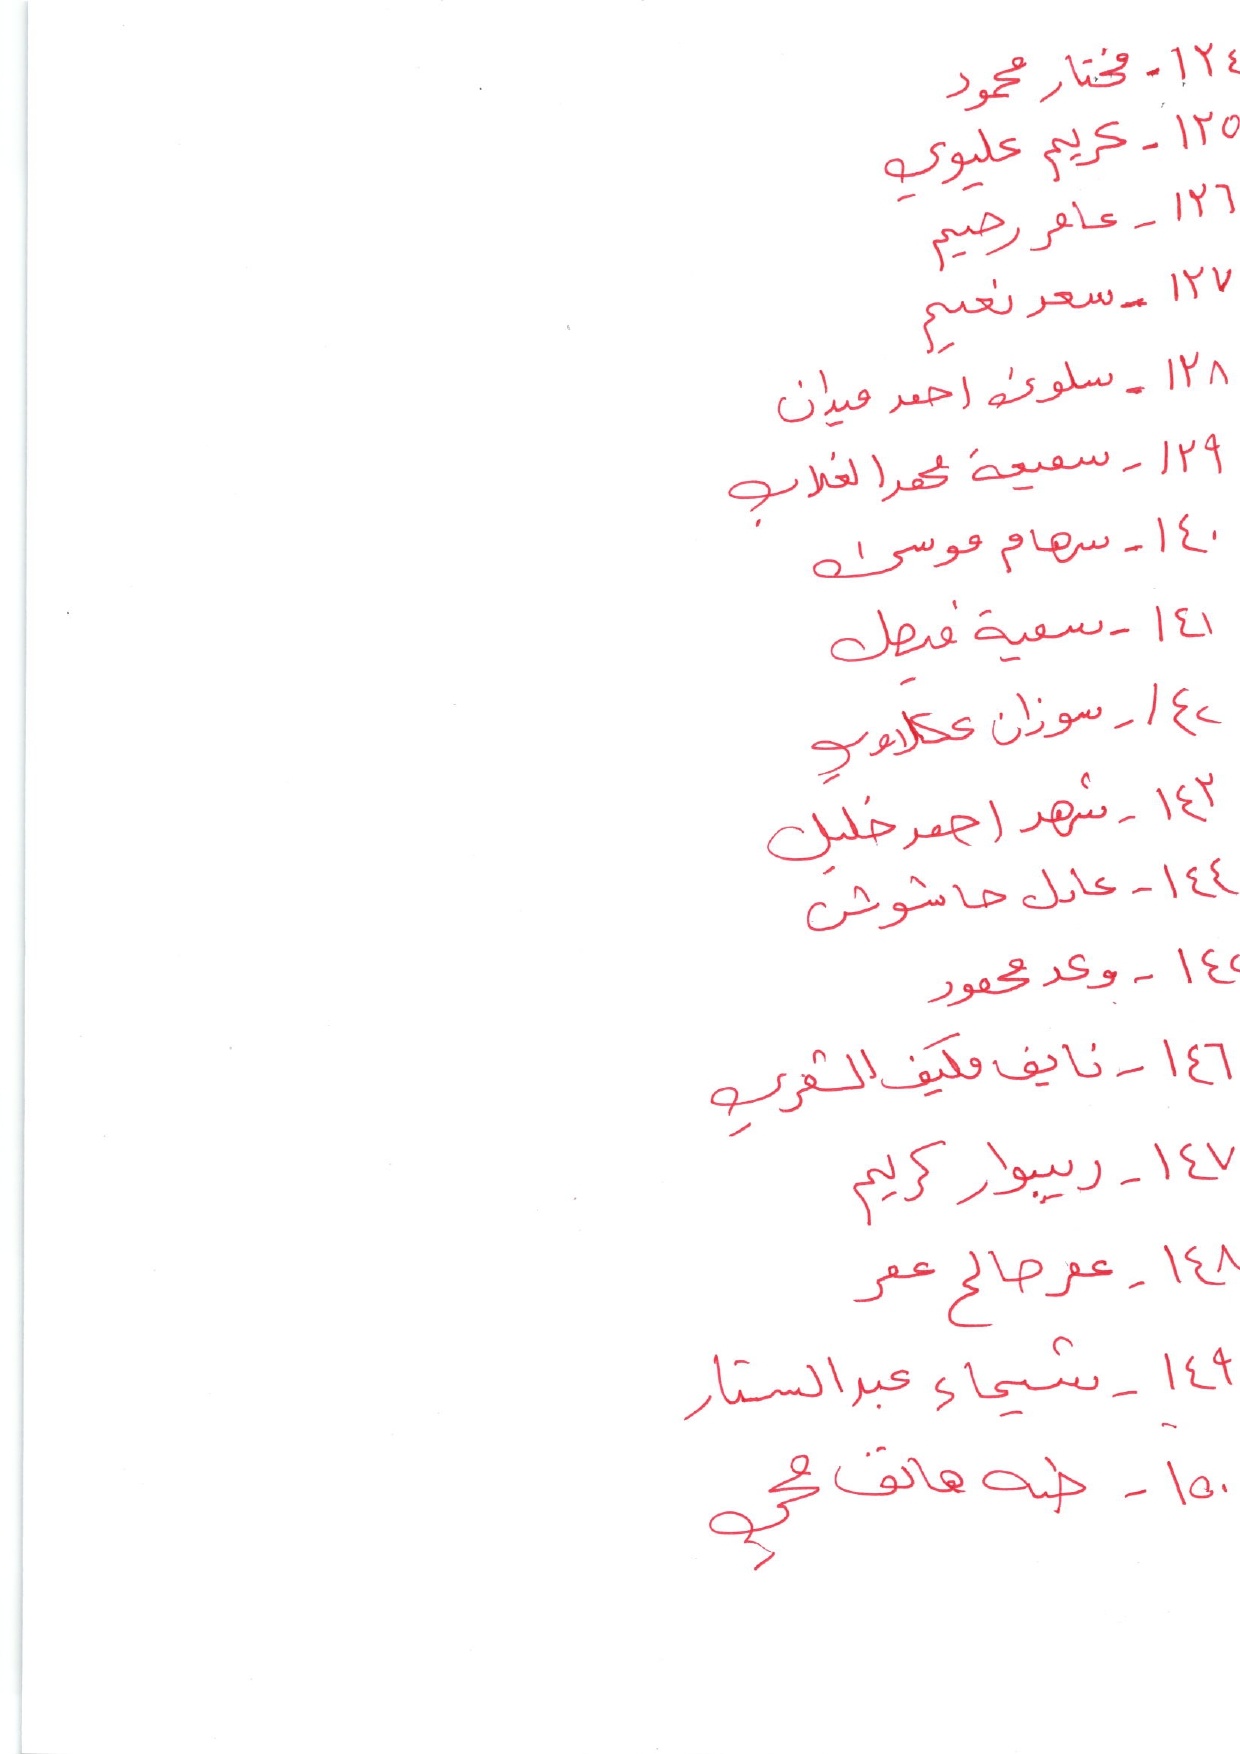 ١٢٤ - مختار محمود
١٢٥ - كريم عليوي
١٢٦ - عامر رحيم
١٢٧ - سعد نعيم
١٢٨ - سلوى احمد ميدان
١٢٩ - سميعة محمد الغلاب
١٤٠ - سهام موسى
١٤١ - سمية فيصل
١٤٢ - سوزان عكلاوي
١٤٣ - شهد احمد خليل
١٤٤ - عادل حاشوش
١٤٥ - وعد محمود
١٤٦ - نايف مكيف الشمري
١٤٧ - ريبوار كريم
١٤٨ - عمر صالح عمر
١٤٩ - شيماء عبد الستار
١٥٠ - طه هاتف محي